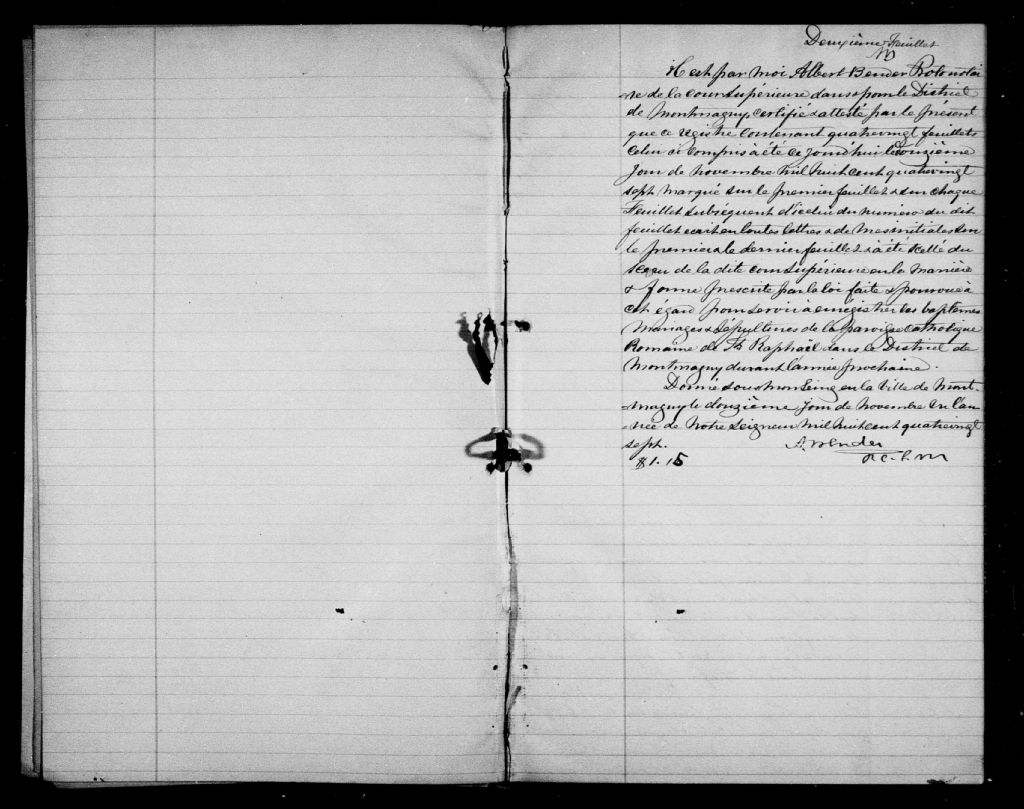 Deuxième Feuillet
AB
Il est par moi Albert Bender Protonotai
-re de la cour supérieure dans & pour le District
de Montmagny, certifié & attesté par le présent
que ce registre contenant quatrevingt feuillets
celui ci compris à été ce jourd'hui le douzième
jour de novembre mil huit cent quatrevingt
sept marqué sur le premier feuillet & sur chaque
Feuillet subséquent d'icelui du numéro du dit
feuillet ecrit en toutes lettres & de mes initiales sur
le premier & le dernier feuillet & à été scellé du
sceau de la dite cour supérieure en la manière
& forme prescrite par la loi faite & pourvue à
cet égard pour servir à enrégistrer les baptêmes
Mariages & Sépultures de la Paroisse catholique
Romaine de St Raphaël dans le District de
Montmagny durant l'année prochaine.
Donné sous mon Seing en la Ville de Mont-
-magny le douzième jour de Novembre en l'an-
née de Notre Seigneur mil huit cent quatrevingt
sept.
A. Bender
P.C.S.M
$1.15